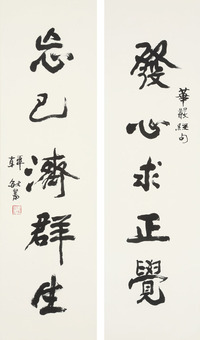 發心求正覺
華嚴經句
忘己濟群生